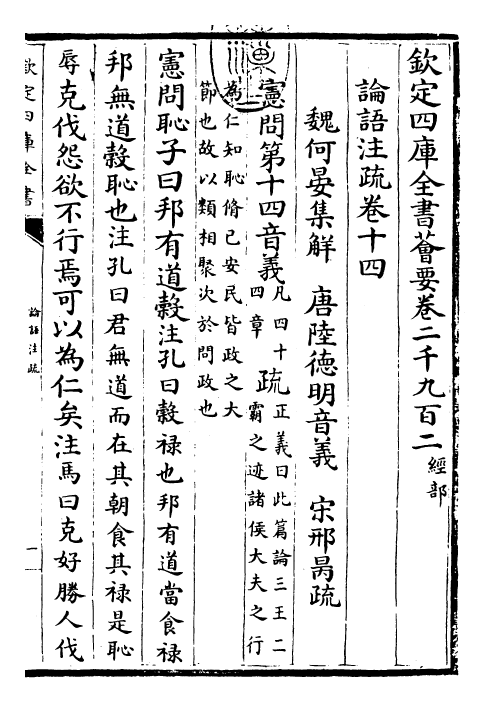 欽定四庫全書薈要卷二千九百二 經部
論語注疏卷十四
魏何晏集解 唐陸德明音義 宋邢昺疏
憲問第十四音義凡四十四章疏正義曰此篇論三王二霸之迹諸侯大夫之行
為仁知恥脩己安民皆政之大節也故以類相聚次於問政也
憲問恥子曰邦有道穀注孔曰穀祿也邦有道當食祿
邦無道穀恥也注孔曰君無道而在其朝食其祿是恥
辱克伐怨欲不行焉可以為仁矣注馬曰克好勝人伐
欽定四庫全書
論語注疏
一